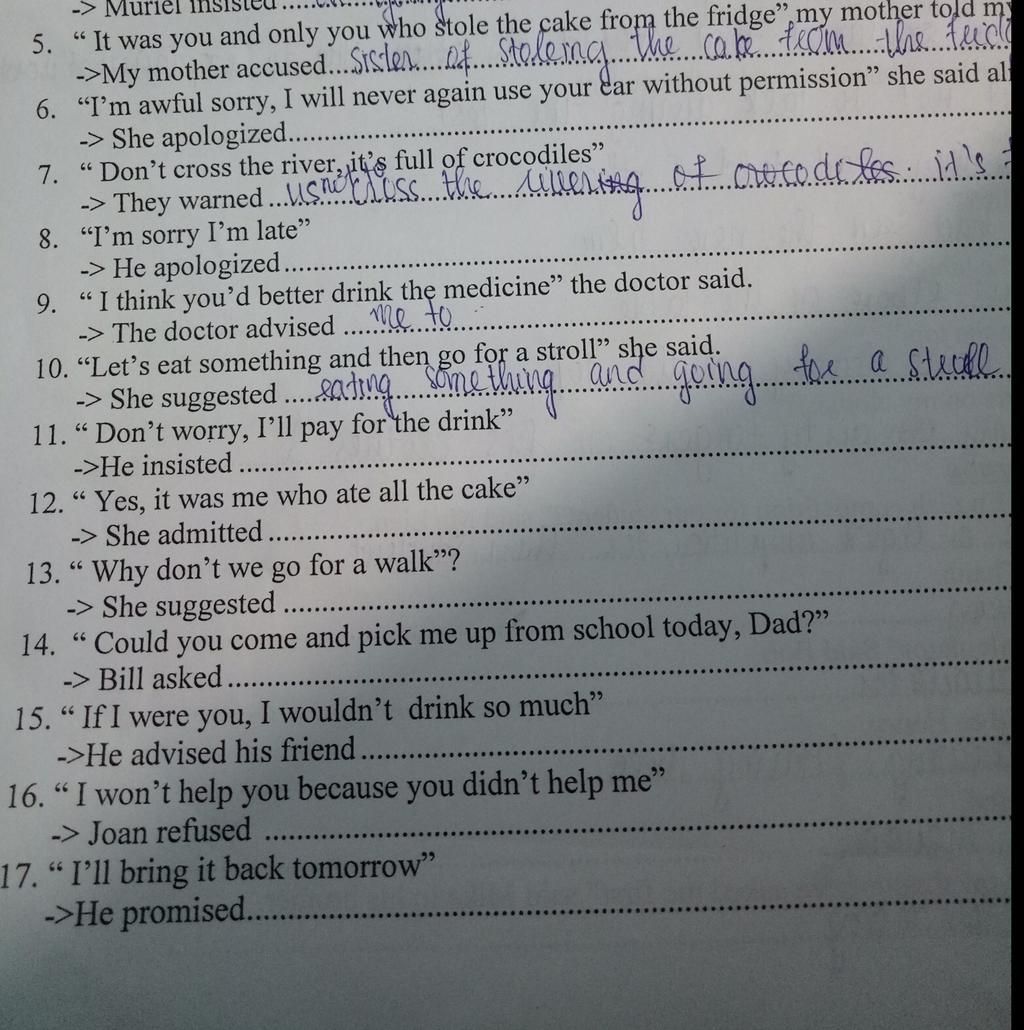 -> Muriel insisted
5. “ It was you and only you who stole the cake from the fridge” my mother told my
->My mother accused...sister...of...stoleing...the cake...from...the
6. “I’m awful sorry, I will never again use your car without permission” she said
-> She apologized..........
7. “ Don’t cross the river, it’s full of crocodiles”
-> They warned ...us not cross the ... of crocodiles. it's
8. “I’m sorry I’m late”
-> He apologized..........
9. “ I think you’d better drink the medicine” the doctor said.
-> The doctor advised ...me to..........
10. “Let’s eat something and then go for a stroll” she said.
-> She suggested ....eating something and going for a stroll
11. “ Don’t worry, I’ll pay for the drink”
->He insisted ..........
12. “ Yes, it was me who ate all the cake”
-> She admitted ..........
13. “ Why don’t we go for a walk”?
-> She suggested ..........
14. “ Could you come and pick me up from school today, Dad?”
-> Bill asked ..........
15. “ If I were you, I wouldn’t drink so much”
->He advised his friend ..........
16. “ I won’t help you because you didn’t help me”
-> Joan refused ..........
17. “ I’ll bring it back tomorrow”
->He promised..........